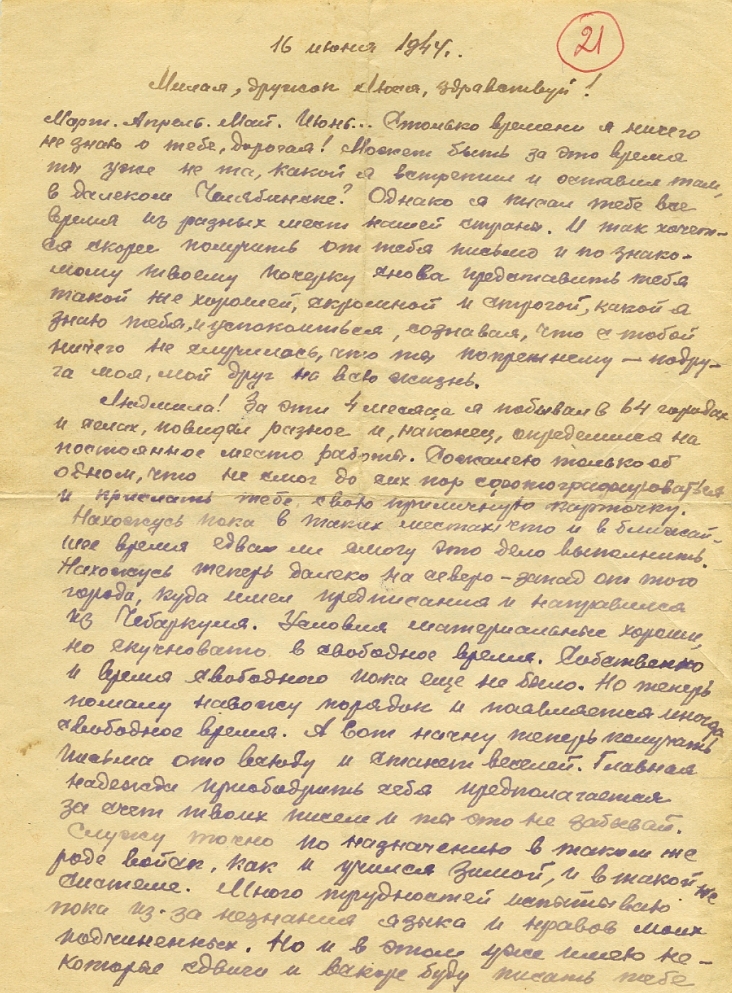 21
16 июня 1944г.
Милая, дружок Люся, здравствуй!
Март. Апрель. Май. Июнь... Столько времени я ничего
не знаю о тебе, дорогая! Может быть за это время
ты уже не та, какой я встретил и оставил там,
в далеком Челябинске? Однако я писал тебе все
время из разных мест нашей страны. И так хочет-
ся скорее получить от тебя письмо и по знако-
мому твоему почерку снова представить тебя
такой же хорошей, скромной и строгой, какой я
знаю тебя, и успокоиться, сознавая, что с тобой
ничего не случилось, что ты попрежнему — подру-
га моя, мой друг на всю жизнь.
Людмила! За эти 4 месяца я побывал в 64 городах
и селах, повидал разное и, наконец, определился на
постоянное место работы. Сожалею только об
одном, что не смог до сих пор сфотографироваться
и прислать тебе свою приличную карточку.
Нахожусь пока в таких местах, что и в ближай-
шее время едва ли смогу это дело выполнить.
Нахожусь теперь далеко на северо-запад от того
города, куда имел предписания и направился
из Чебаркуля. Условия материальные хороши,
но скучновато в свободное время. Собственно
и время свободного пока еще не было. Но теперь
помалу навожу порядок и появляется иногда
свободное время. А вот начну теперь получать
письма ото всюду и станет веселей. Главная
надежда приободрить себя предполагается
за счет твоих писем и ты это не забывай.
Служу точно по назначению в таком же
роде войск, как и учился зимой, и в такой же
системе. Много трудностей испытываю
пока из-за незнания языка и нравов моих
подчиненных. Но и в этом уже имею не-
которые сдвиги и вскоре буду писать тебе